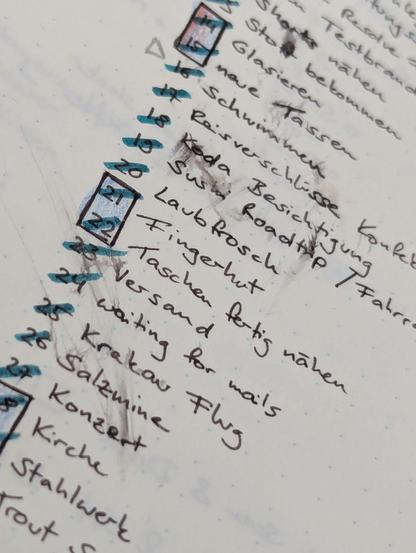 Shorts nähen
14 Stoff bekommen
15 Glasieren
16 neue Tassen
17 Schwimmen
18 Reisverschlüsse
19 Koda Besichtigung
20 Sushi Roadtrip /Fahrr
21 Laubfrosch
22 Fingerhut
23 Taschen fertig nähen
24 Versand
25 waiting for mails
26 Krakau Flug
27 Salzmine
Konzert
Kirche
Stahlwerk
Trout